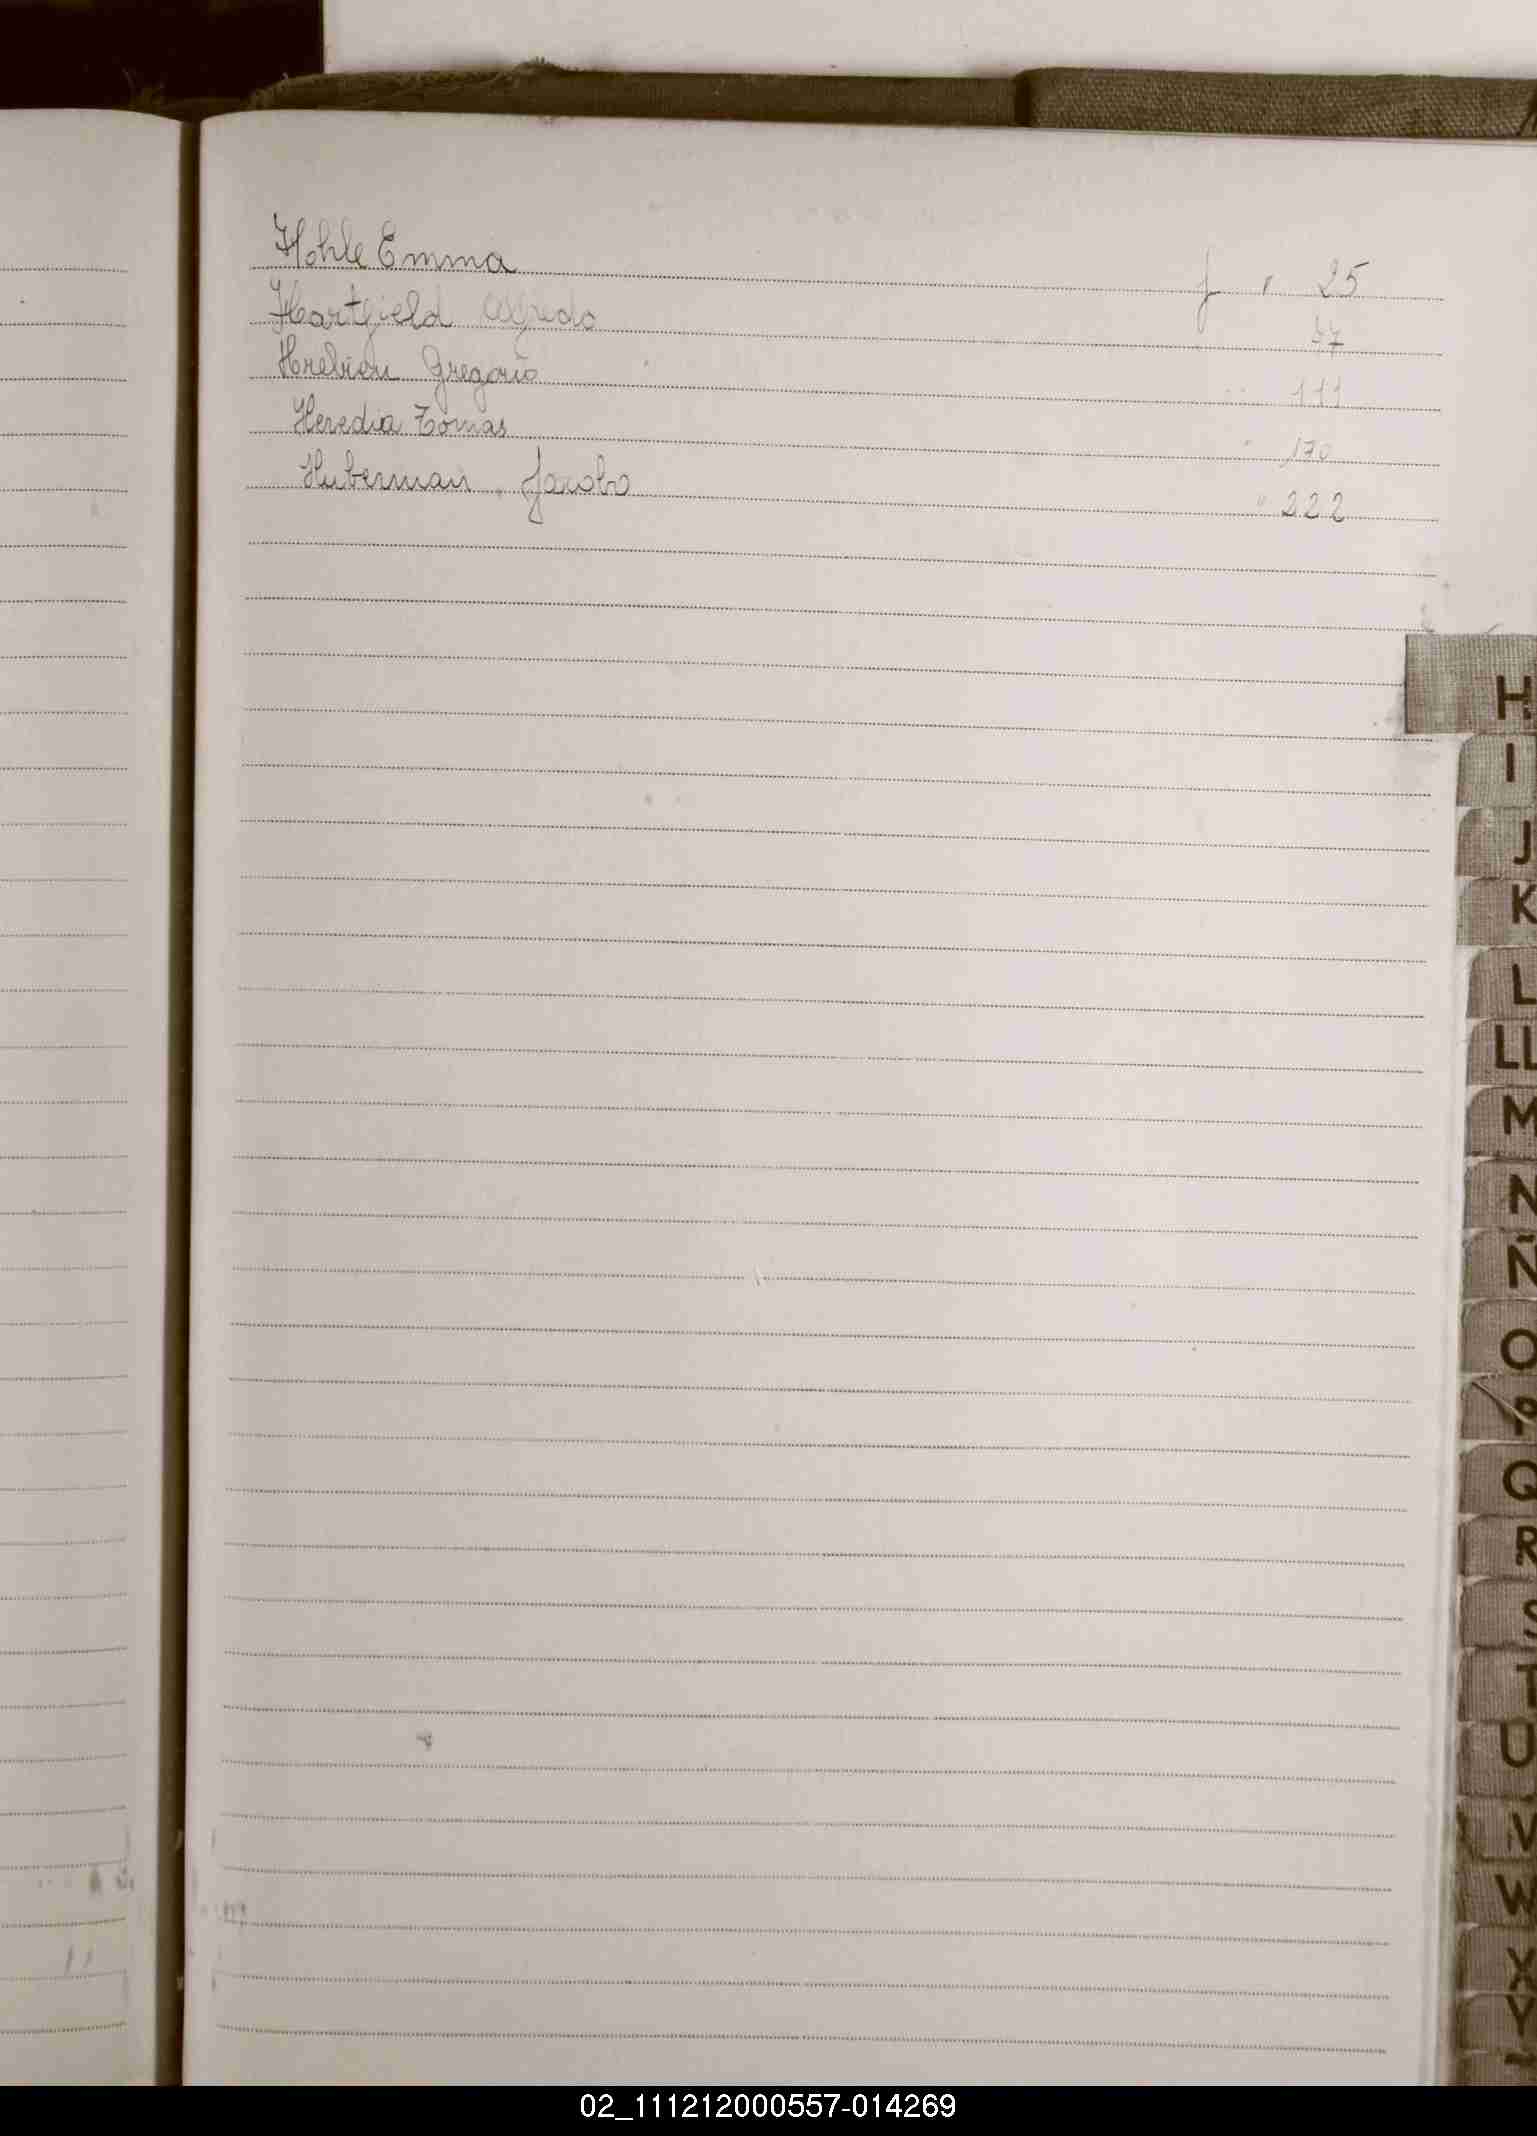 Hohle Emma f " 25
Hartfield Alfredo 47
Gregorio " 111
Heredia Tomas " 170
Huberman, Jacobo " 222
H
I
J
K
L
LL
M
N
Ñ
O
P
Q
R
S
T
U
V
W
X
Y
02_111212000557-014269